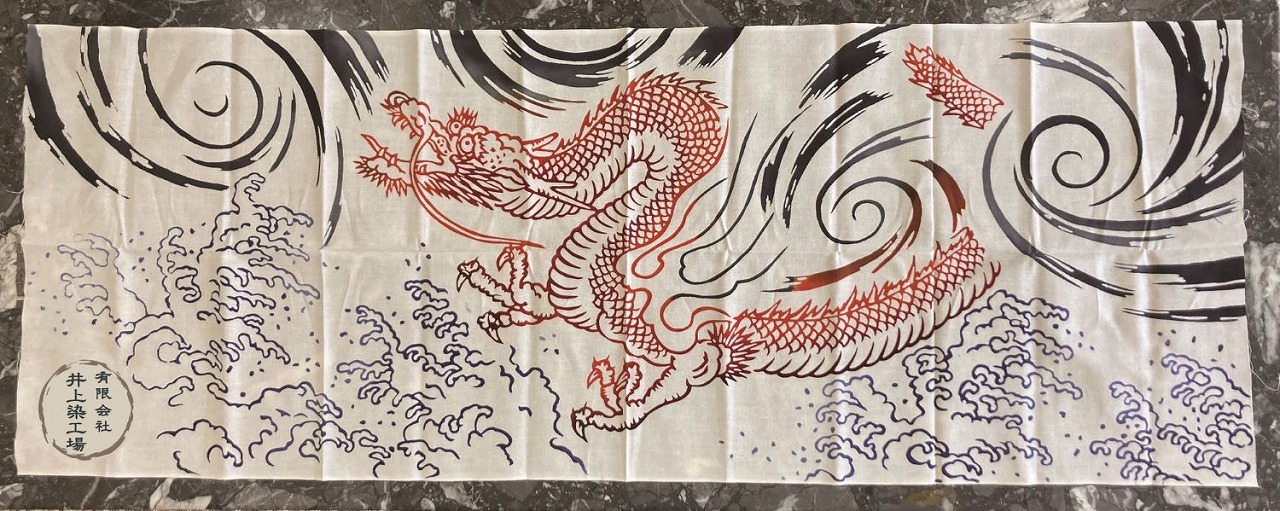 有限会社
井上染工場